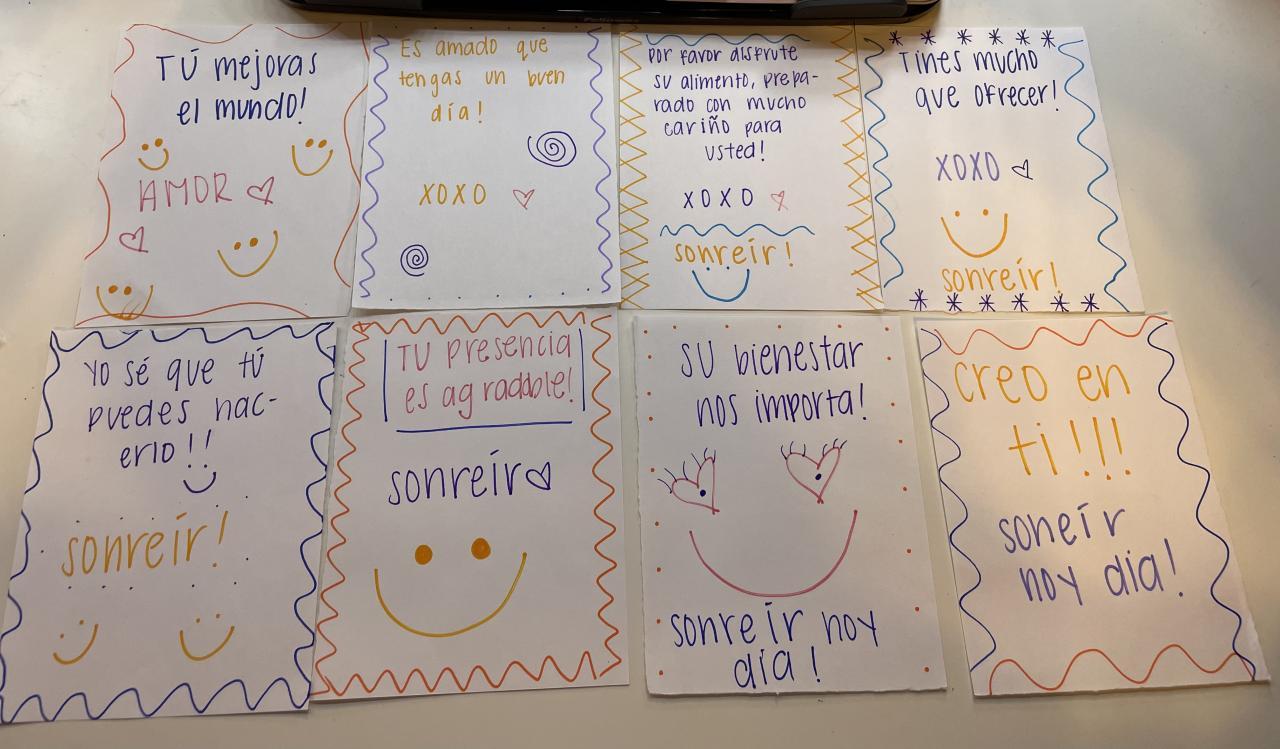 TÚ mejoras
el mundo!
AMOR
Es amado que
tengas un buen
día!
XOXO
Por favor disfrute
su alimento, prepa-
rado con mucho
cariño para
usted!
XOXO
sonreír!
Tines mucho
que ofrecer!
XOXO
sonreír!
Yo sé que tú
puedes hac-
erlo!!
sonreír!
TU presencia
es agradable!
sonreír
SU bienestar
nos importa!
sonreír hoy
día!
creo en
ti!!!
soneír
hoy día!